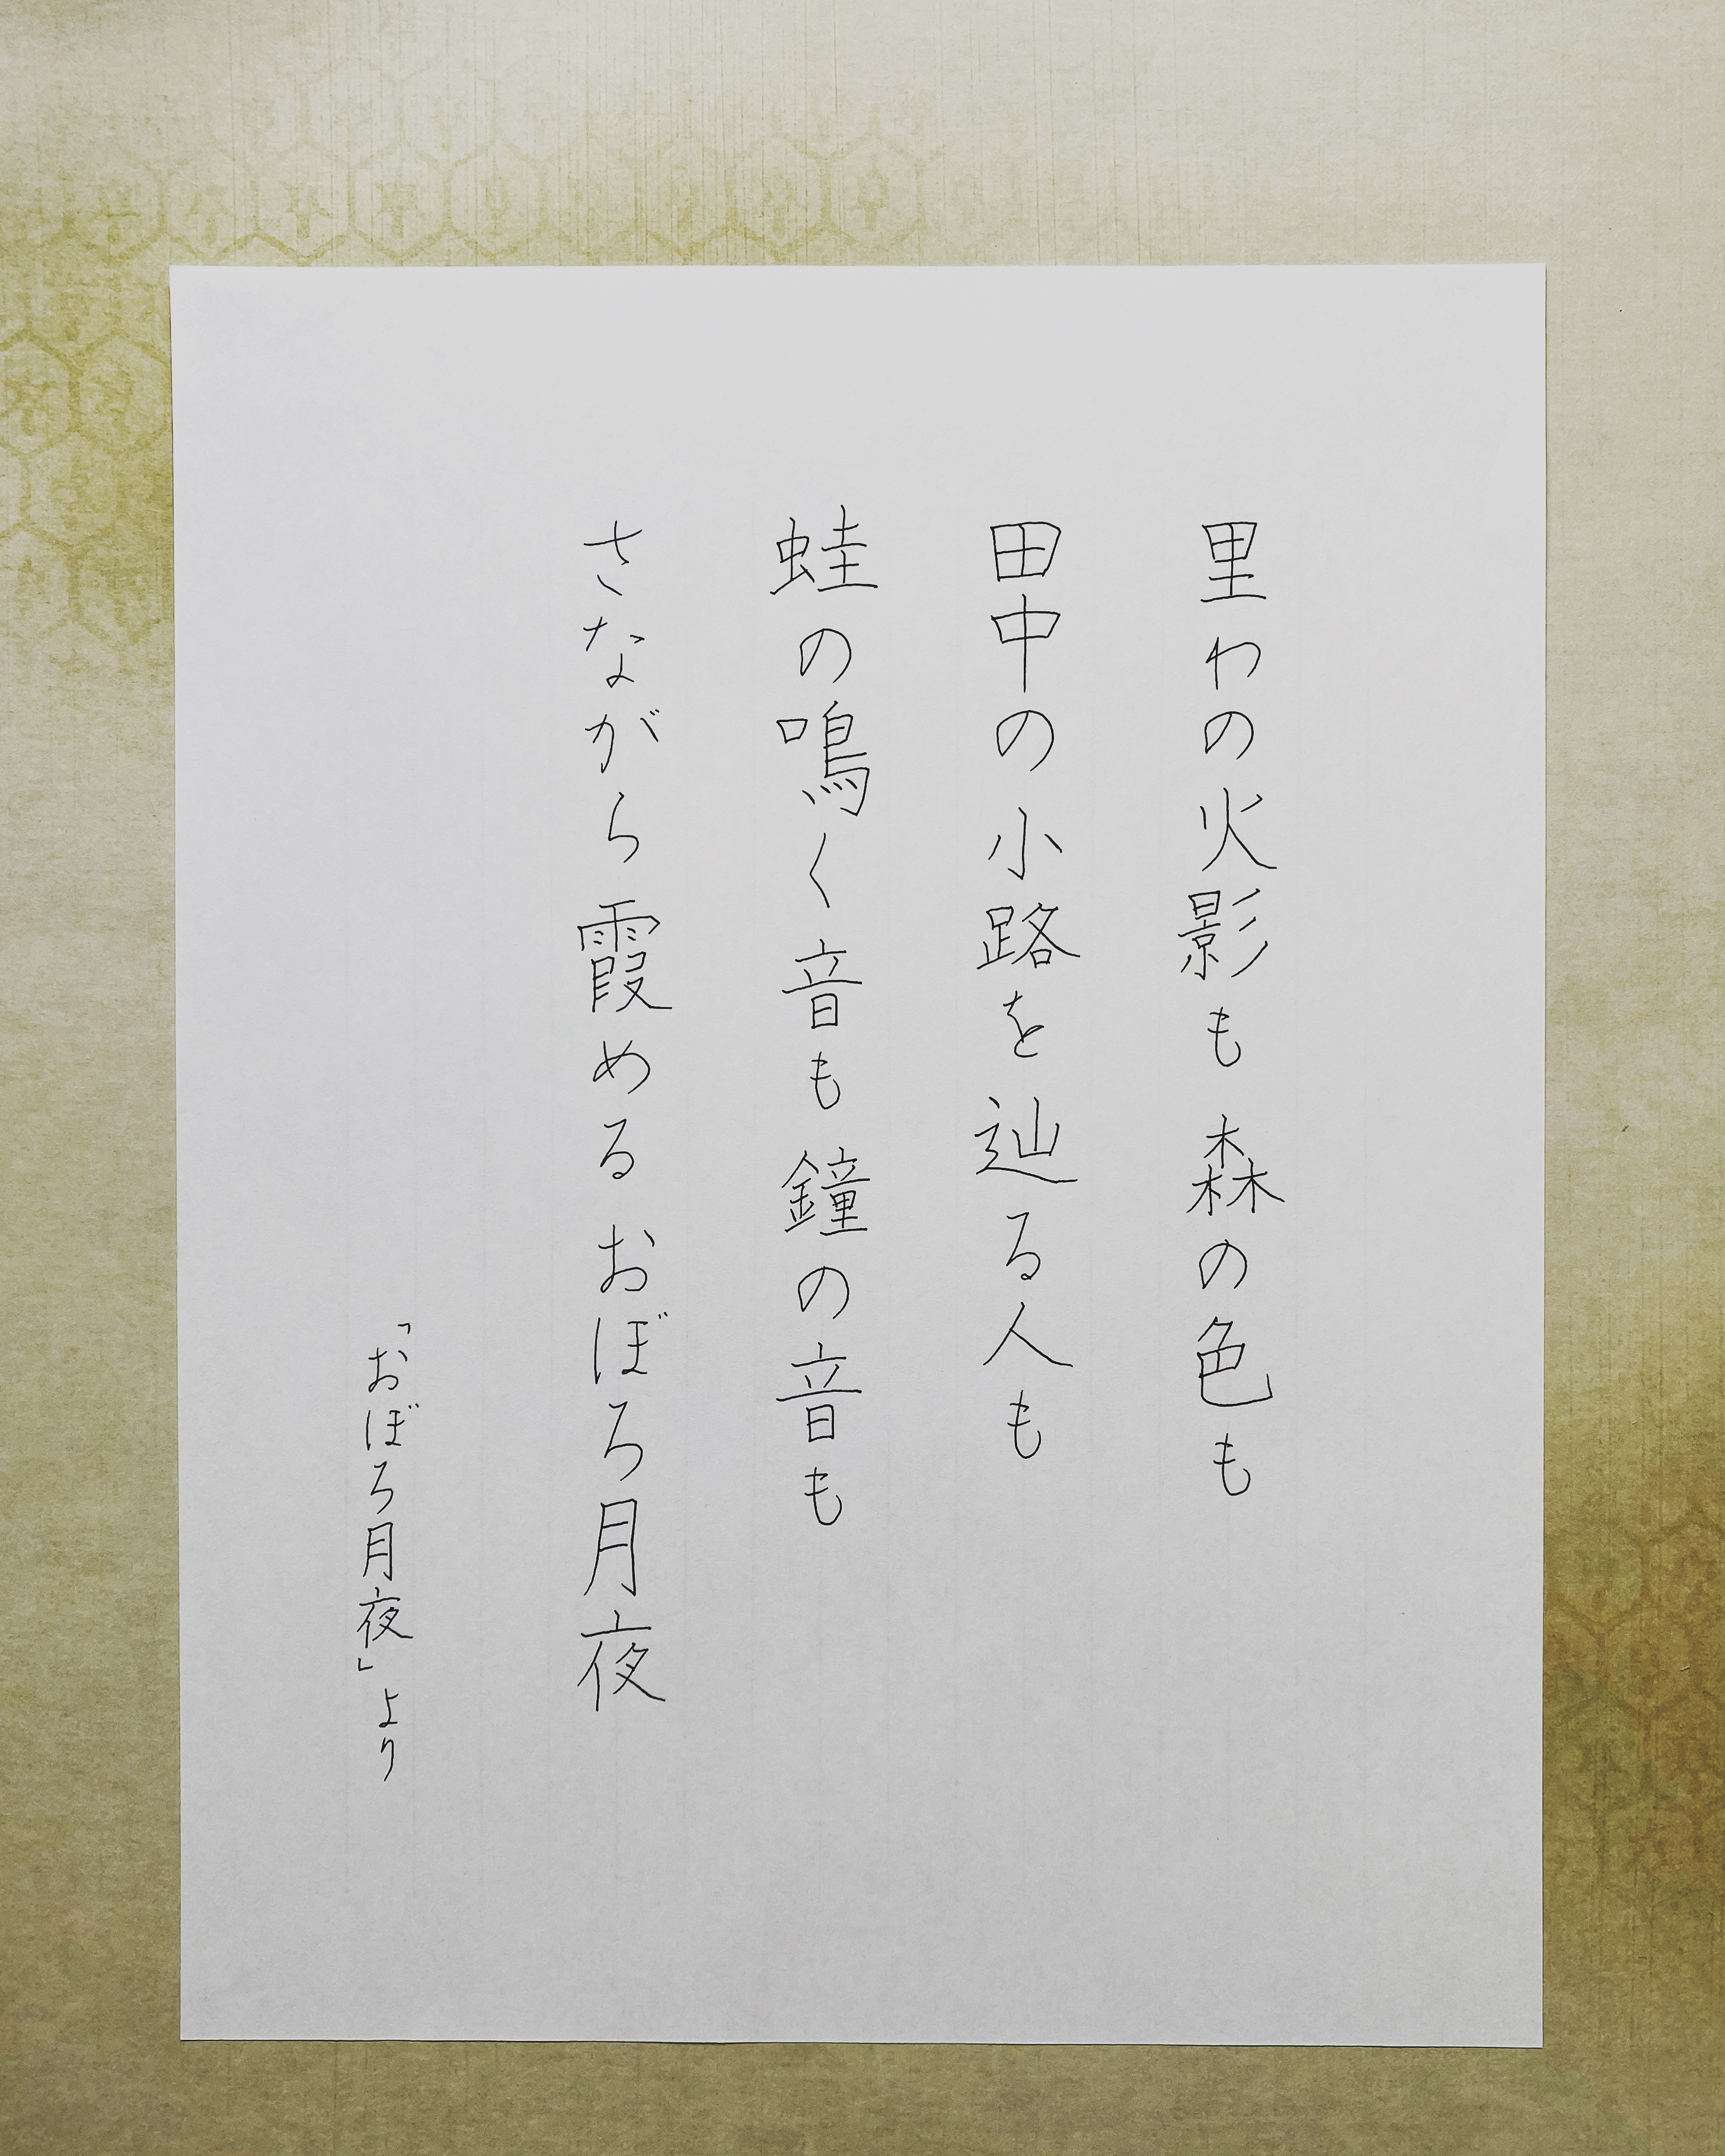 里わの火影も 森の色も
田中の小路を辿る人も
蛙の鳴く音も 鐘の音も
さながら霞める おぼろ月夜
「おぼろ月夜」より